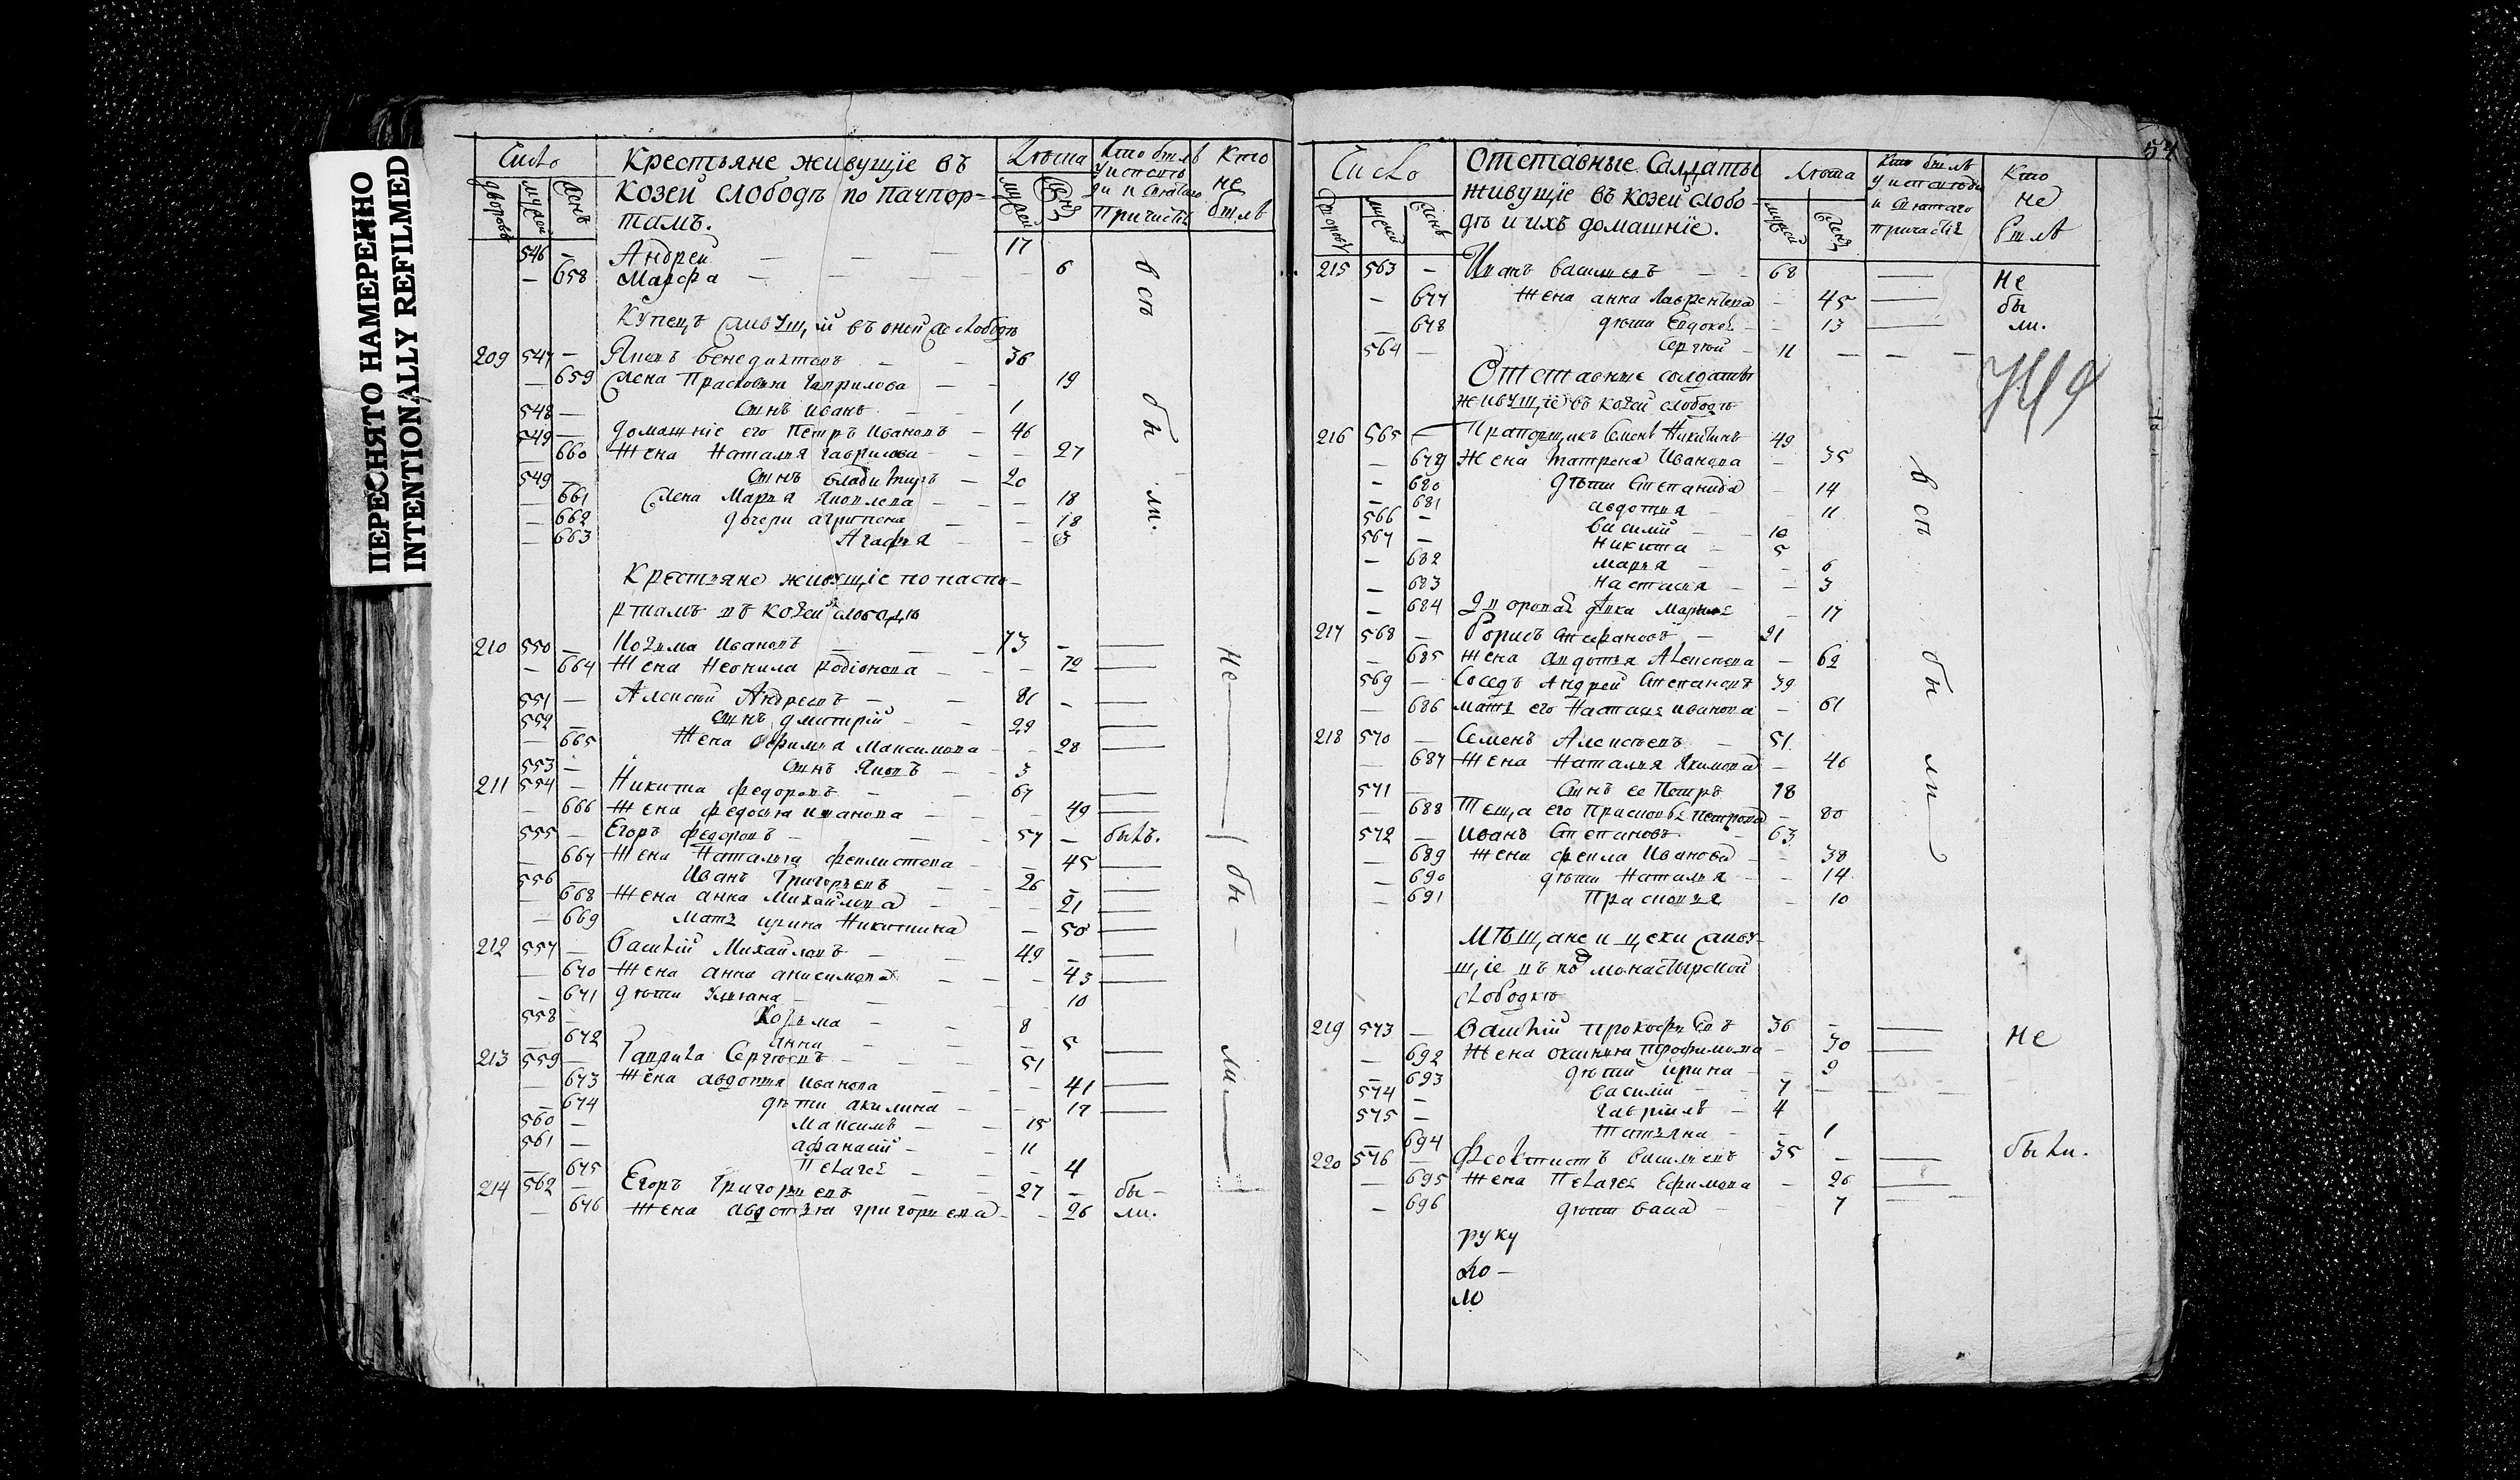 ПЕРЕСНЯТО НАМЕРЕННО
INTENTIONALLY REFILMED
Число
Крестьяне живущїе въ
козей слободѣ по пачпор-
тамъ.
Лѣта
Кто былъ
у исповѣ
ди и святаго
причастья
Кто
не
былъ
дворовъ мужей женъ
мужей женъ
546 — Андрей — — — 17
— 658 Марфа — 6
Купецъ живущїй въ оней слободѣ
209 547 — Яковъ Венедиктовъ — — 36
— 659 Жена Прасковья Гаврилова — — 19
548 — Сынъ Иванъ — — 1
549 — Домашнїе его Петръ Ивановъ — 46
660 Жена Наталья Гаврилова — — 27
549 — Сынъ Владимиръ — 20
— 661 Жена Марья Яковлева — — 18
— 662 Дочери Агрипена — — 18
— 663 Агафья — —
вси
бы
ли.
Крестьяне живущїе по паспо-
ртамъ въ козей слободѣ
210 550 — Козьма Ивановъ — — 73 — —
— 664 Жена Неонила Родїонова — — 72 —
551 — Алексѣй Андреевъ — — 81 — —
552 — Сынъ Дмитрїй — — 29 —
— 665 Жена Ефимья Максимова — — 28 —
553 — Сынъ Яковъ — — 3
211 554 — Никита Федоровъ — — 67 —
— 666 Жена Федосья Иванова — — 49 —
555 — Егоръ Федоровъ — — 57 — былъ.
— 667 Жена Наталья Феклистова — — 45 —
556 — Иванъ Григорьевъ — — 26 — —
— 668 Жена Анна Михайлова — — 21 —
— 669 Мать Ирина Никитина — 50 —
212 557 — Василїй Михайловъ — — 49 — —
— 670 Жена Анна Анисимова — — 43 —
— 671 Дѣти Ульяна — — 10
558 — Козьма — — 8
— 672 Анна — — 5
213 559 — Гаврила Сергѣевъ — — 51 —
— 673 Жена Авдотья Иванова — — 41 —
— 674 Дѣти Акилина — — 17 —
560 — Максимъ — — 15
561 — Афанасїй — — 11
— 675 Пелагея — — 4
214 562 — Егоръ Григорьевъ — — 27 — бы-
— 676 Жена Авдотья Григорьева — — 26 ли.
Не
бы
ли
54
Число
Отставные Салдаты
живущїе въ козей слобо-
дѣ и ихъ домашнїе.
Лѣта
Кто былъ
у исповѣди
и святаго
причастья
Кто
не
былъ
дворовъ мужей женъ
мужей женъ
215 563 — Иванъ Васильевъ — — 68 — Не
— 677 Жена Анна Лаврентьева — 45 — бы
— 678 Дѣти Евдокея — — 13 — ли.
564 — Сергѣй — 11 — — —
Отставные солдаты
живущїе въ козей слободѣ
216 565 — Прапорщикъ Семенъ Никитинъ 49
— 679 Жена Матрена Иванова — 35
— 680 Дѣти Степанида — 14
— 681 Авдотья — — 11
566 — Василїй — — 10
567 — Никита — 5
— 682 Марья — — 6
— 683 Настасья — — 3
— 684 Дворовая дѣвка — 17
217 568 — Борисъ Стефановъ — 21
— 685 Жена Авдотья Алексѣева — 62
569 — Соседъ Андрей Степановъ 39
— 686 Мать его Настасья Иванова — 61
218 570 — Семенъ Алексѣевъ — 51
— 687 Жена Наталья Якимова — 46
571 — Сынъ ее Петръ 18
688 Теща его Прасковья Петрова — 80
572 — Иванъ Степановъ — 63
— 689 Жена Фекла Иванова — — 38
— 690 Дѣти Наталья — — 14
— 691 Прасковья — 10
вси
бы
ли
Мѣщане и цехи живу-
щїе въ подмонастырской
слободкѣ
219 573 — Василїй Прокофьевъ 36 — — Не
— 692 Жена Оксинья Трофимова — 30 —
— 693 Дѣти Ирина — — 9
574 — Василїй — — 7 —
575 — Гаврїилъ — 4
— 694 Татьяна — — 1
220 576 — Феоктистъ Васильевъ 35 — — были.
— 695 Жена Пелагея Ефимова — 26 —
— 696 Дѣти — — 7
руку
ло